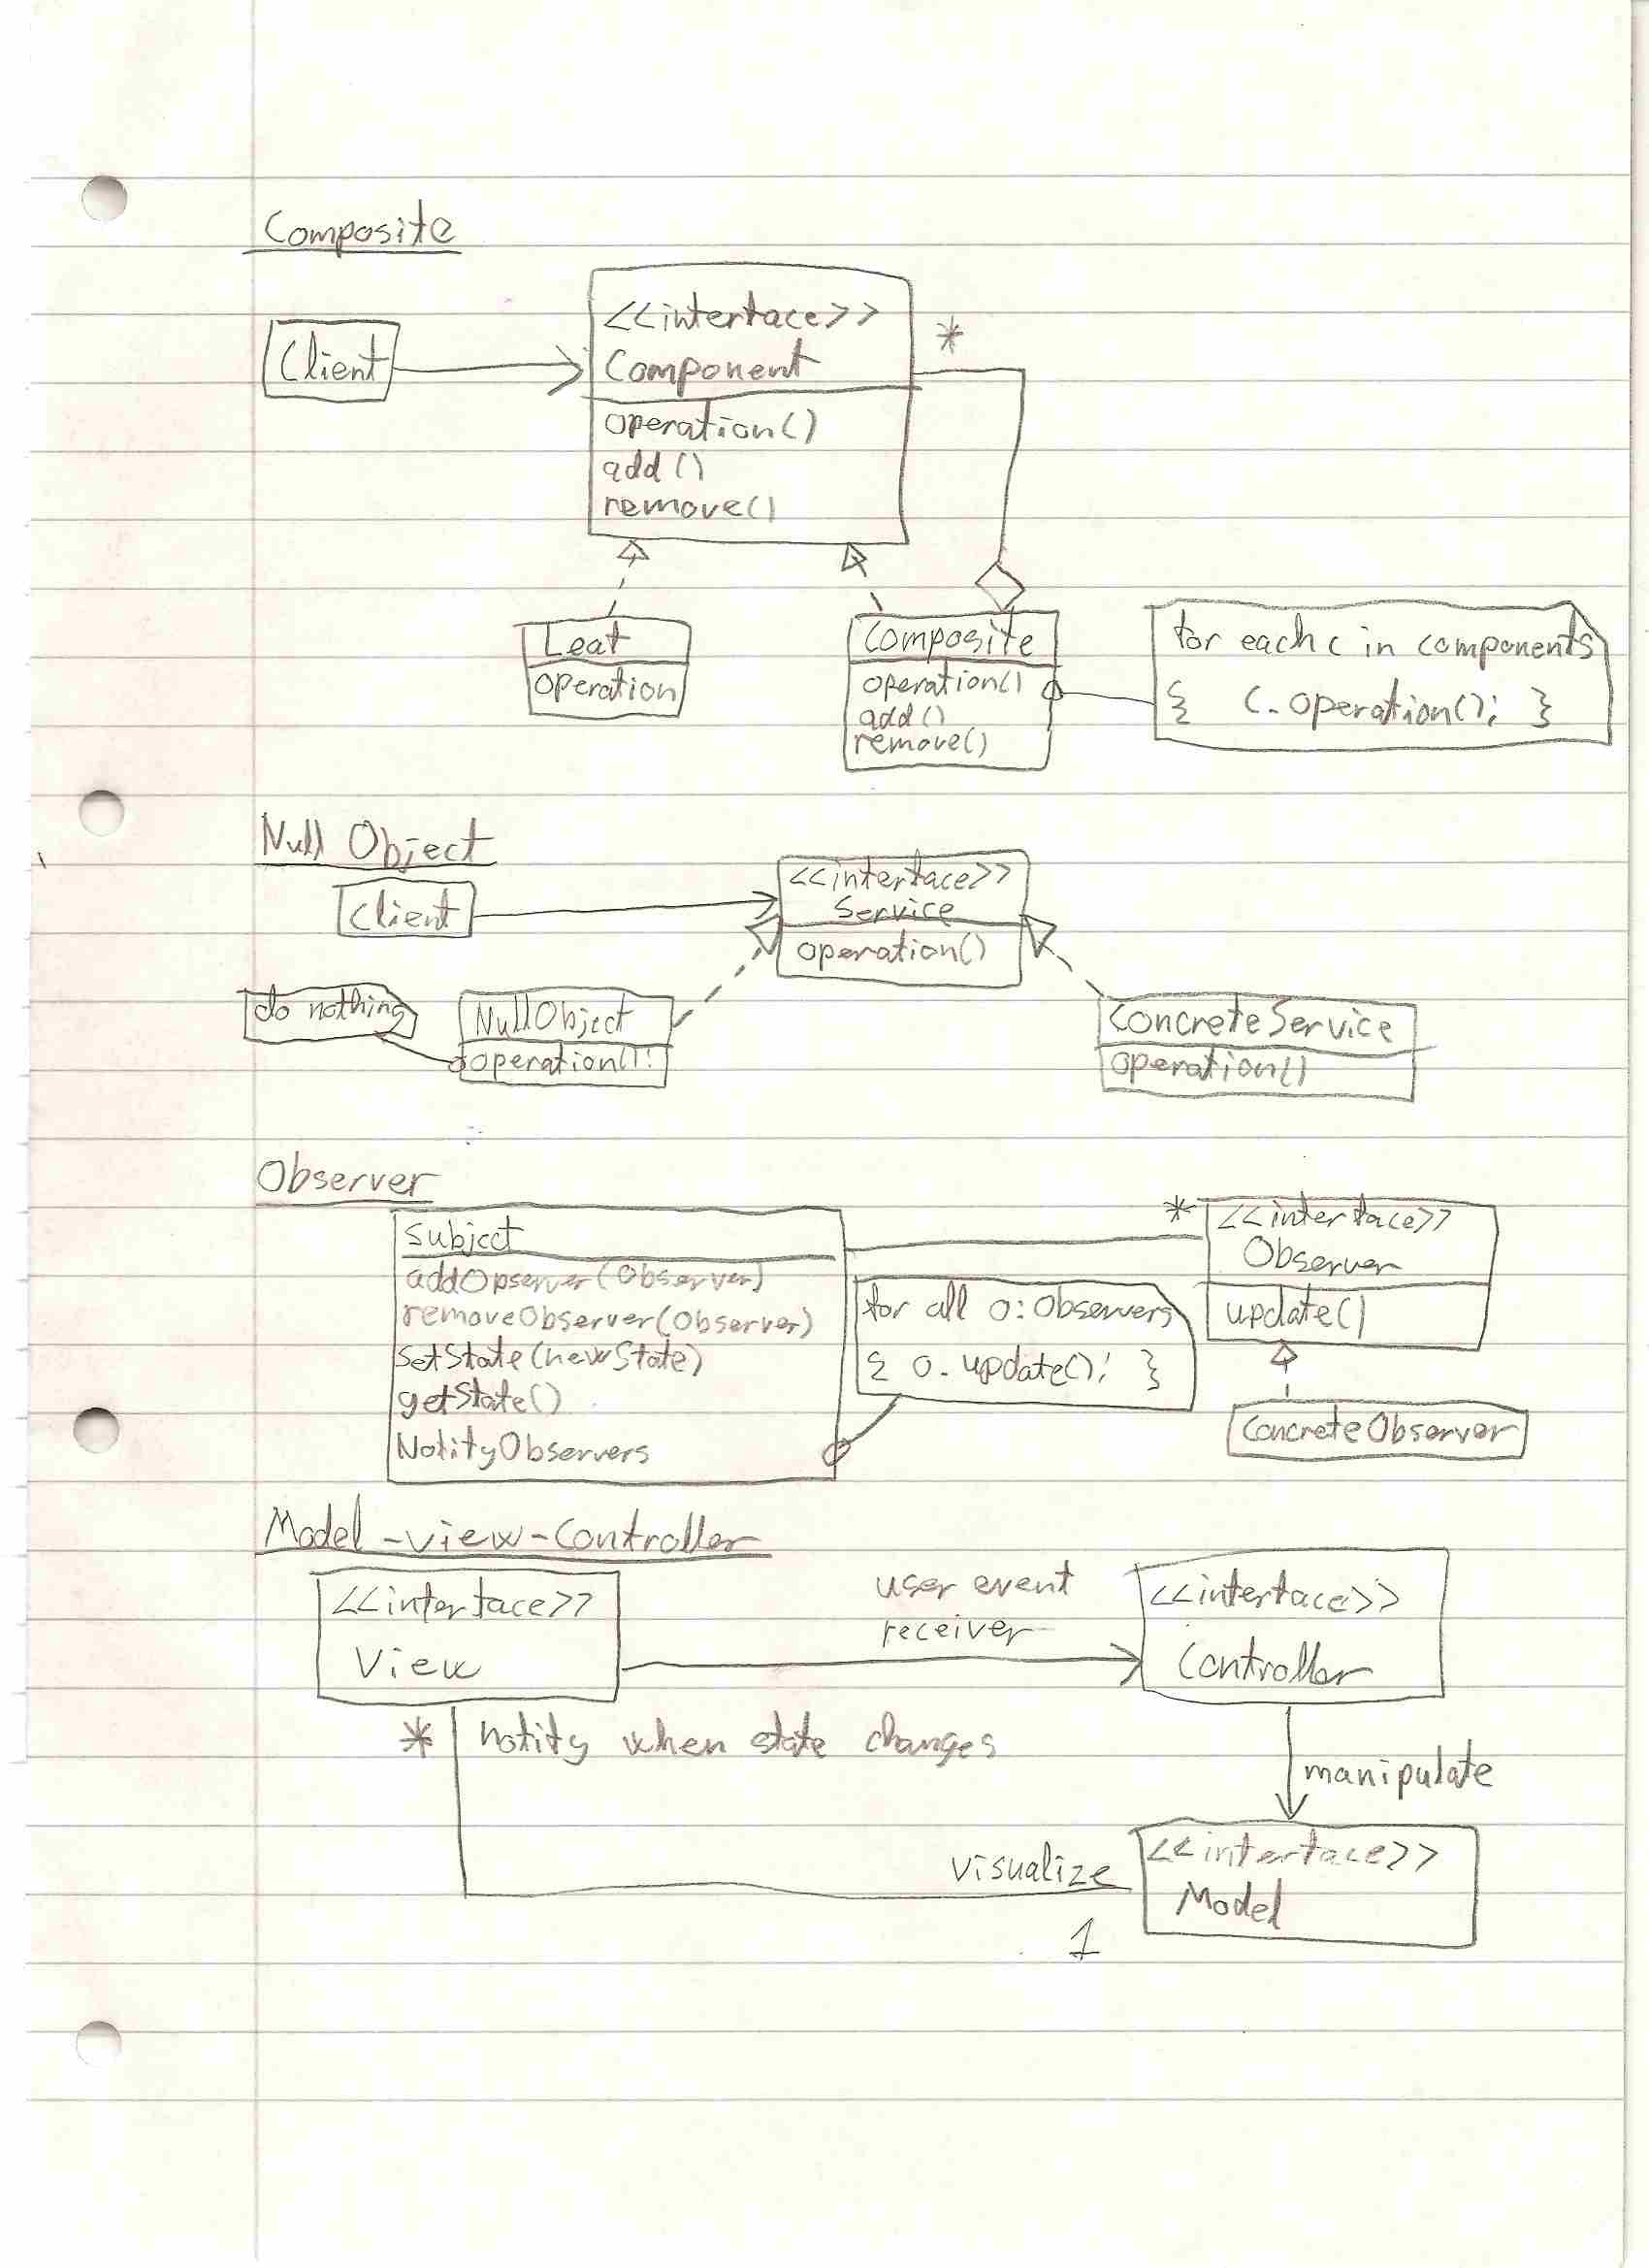 Composite
<<interface>>
Component
*
Client
operation()
add()
remove()
Leaf
operation
Composite
operation()
add()
remove()
for each c in components
{ c.operation(); }
Null Object
Client
<<interface>>
Service
operation()
do nothing
NullObject
operation()
ConcreteService
operation()
Observer
Subject
addOpserver(Observer)
removeObserver(Observer)
setState(newState)
getState()
NotifyObservers
*
<<interface>>
Observer
update()
for all o: Observers
{ o.update(); }
ConcreteObserver
Model-View-Controller
<<interface>>
View
user event
receiver
<<interface>>
Controller
*
notify when state changes
manipulate
visualize
1
<<interface>>
Model